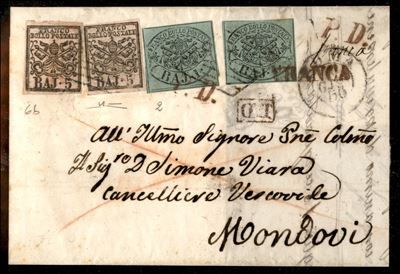 FRANCO
BOLLO POSTALE
BAJ-5
FRANCO
BOLLO POSTALE
BAJ-5
FRANCO BOLLO POSTALE
BAJ. 1
FRANCO BOLLO POSTALE
BAJ.
P. D.
P. D.
FRANCA
P.D.
6b
2
All' Illmo Signore Pne Colmo
Il Sigre D Simone Viara
Cancelliere Vescovile
Mondovi